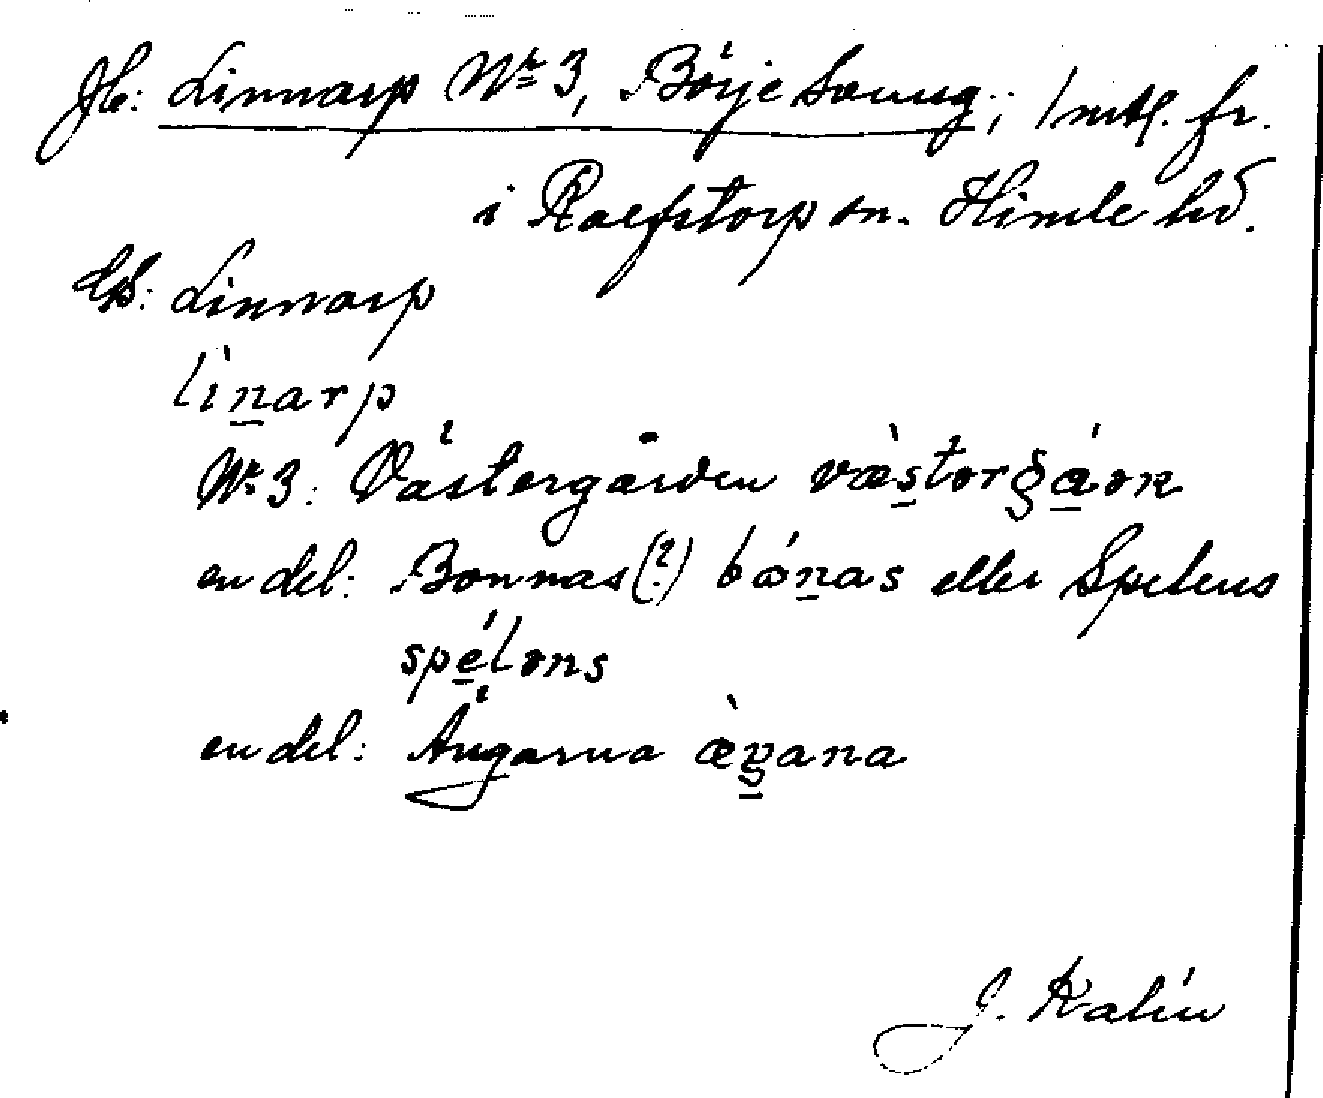 Jb: Linnarp Nr 3, Börje Svens g.; 1 mtl. fr.
i Raefstorp sn. Himle hd.
Linnarp
lìnarp
Nr 3: Västergården væ̀storgáon
en del: Bonnas(?) bónas eller Spelens
spélons
en del: Ängarna æ̀ŋana
J. Kalén